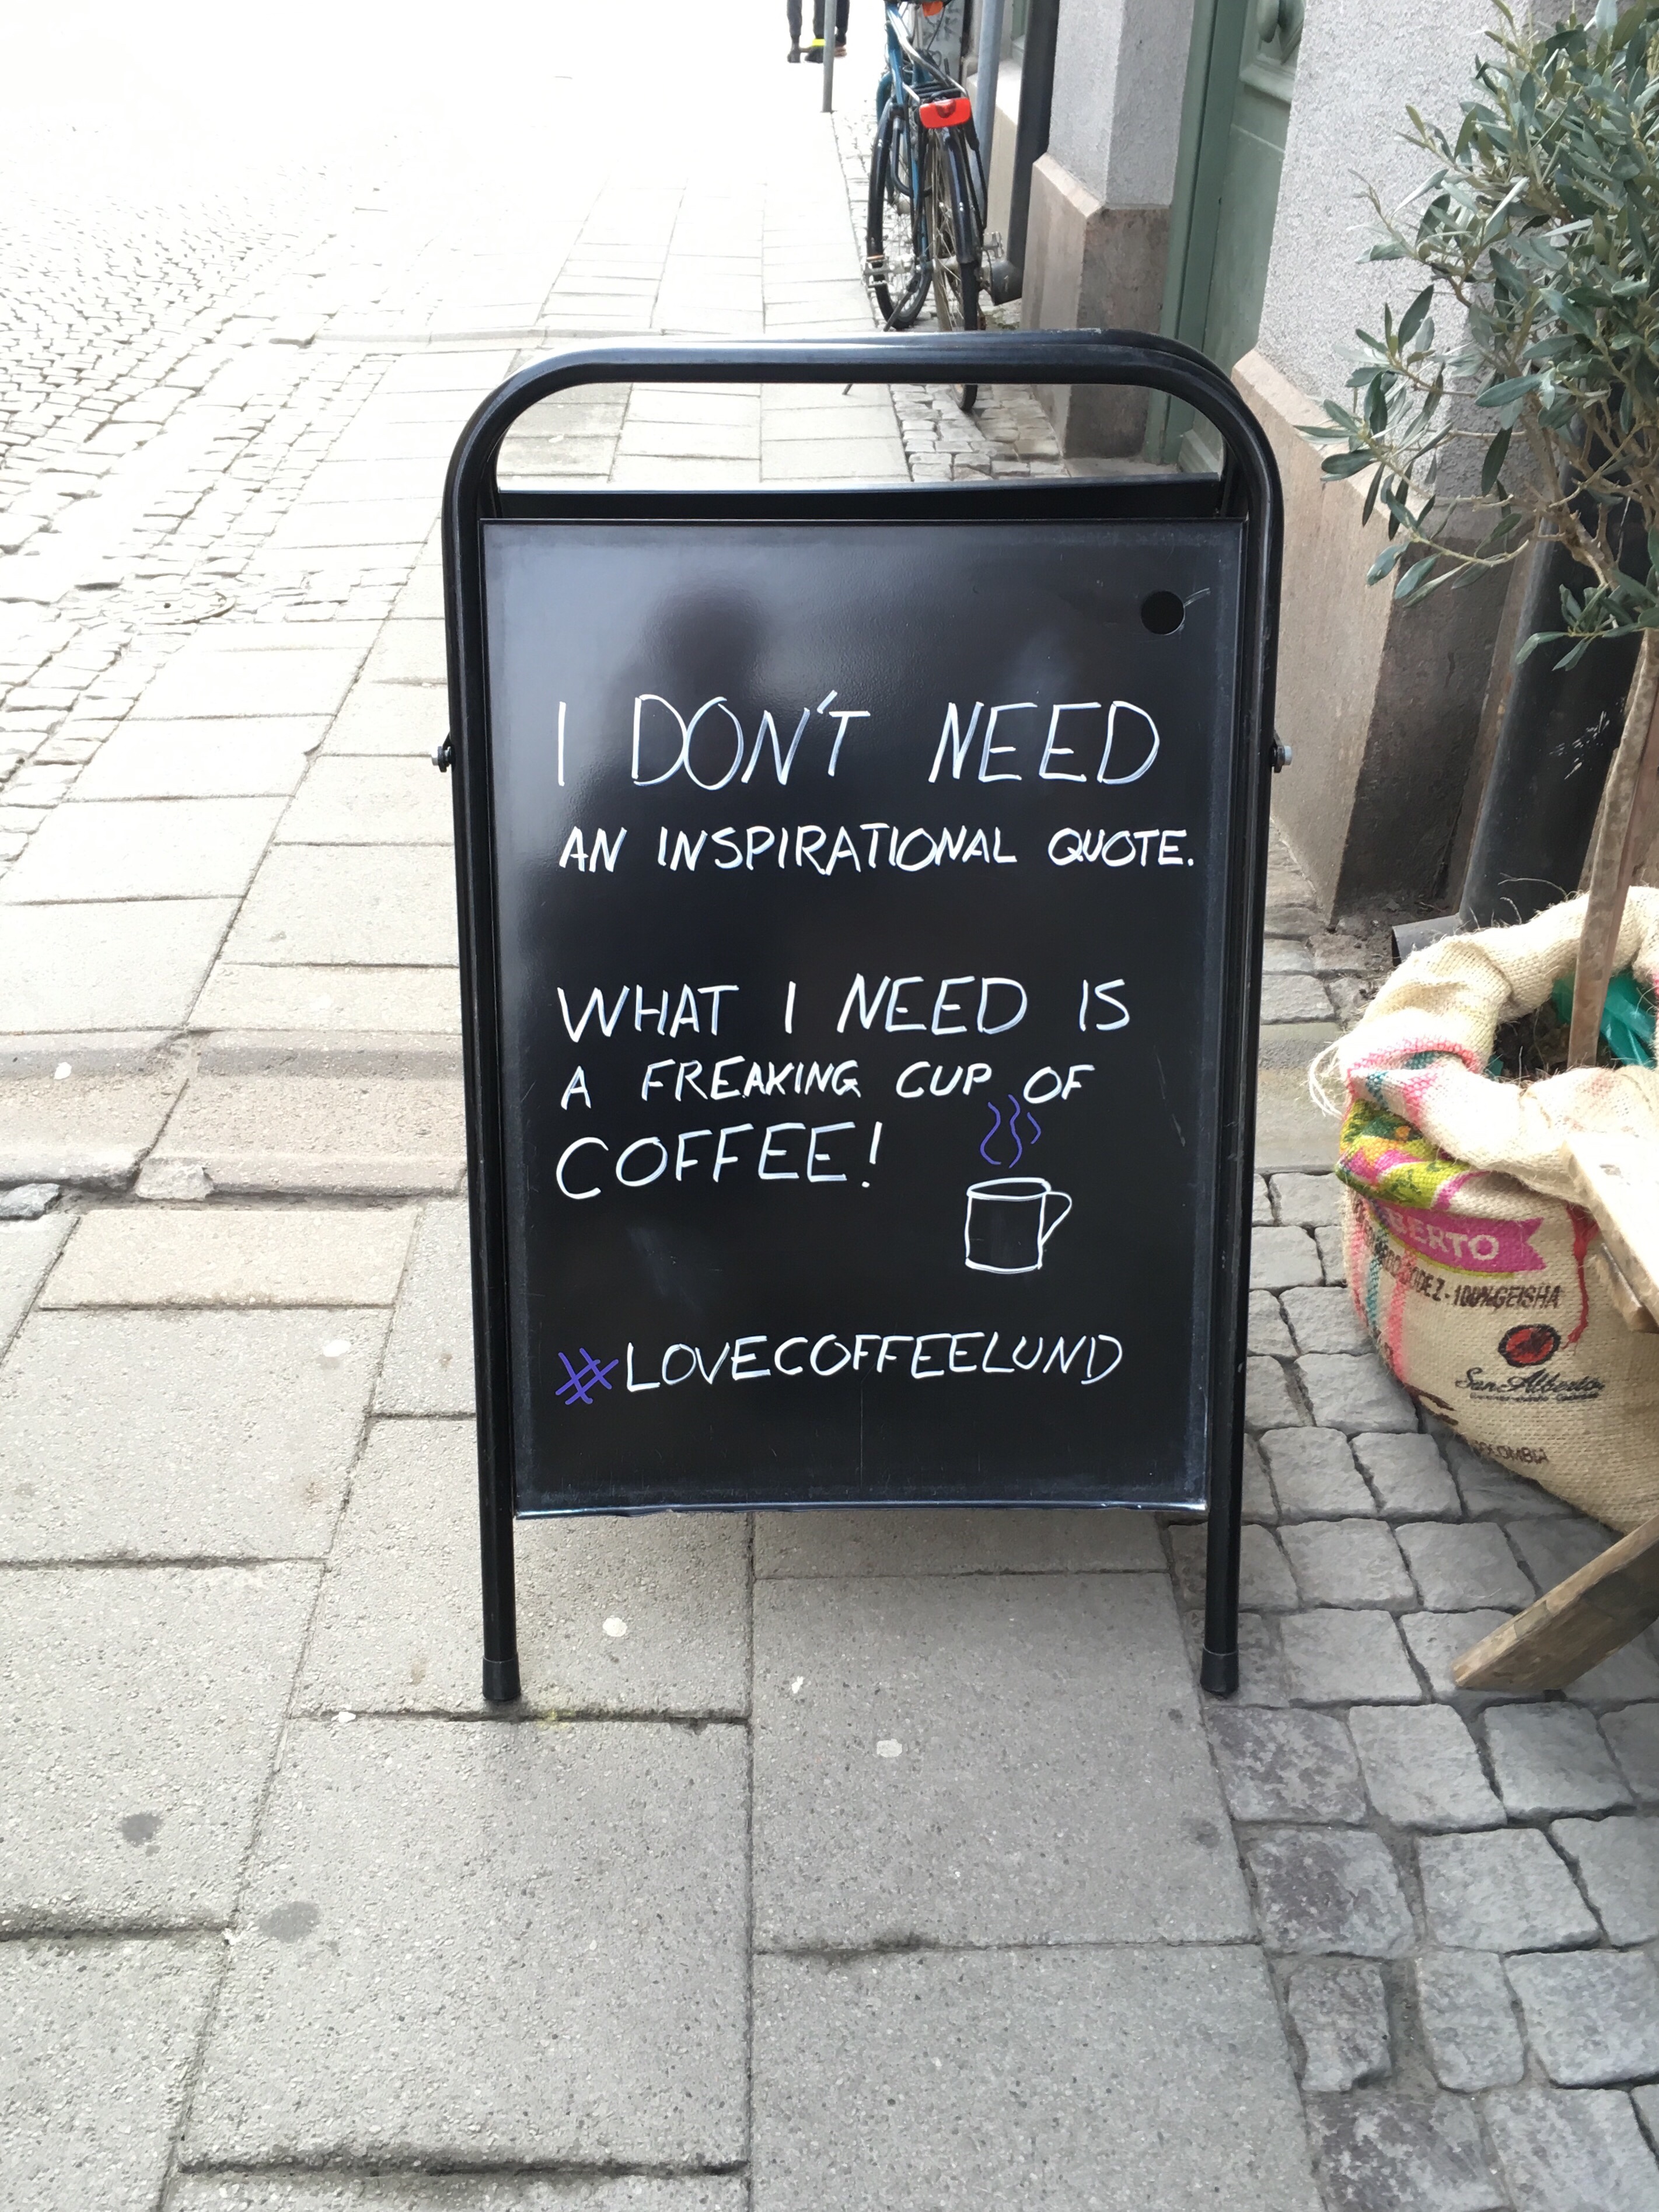 I DON'T NEED
AN INSPIRATIONAL QUOTE.
WHAT I NEED IS
A FREAKING CUP OF
COFFEE!
#LOVECOFFEELUND
BERTO
- 100% GEISHA
San Alberto